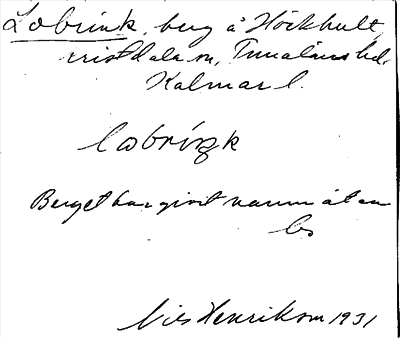 Lobrink, berg å Höckhult,
Kristdala sn, Tunaläns hd.
Kalmar l.
lobriŋk
Berget har givit namn åt en
bs
Nils Henrikson 1931